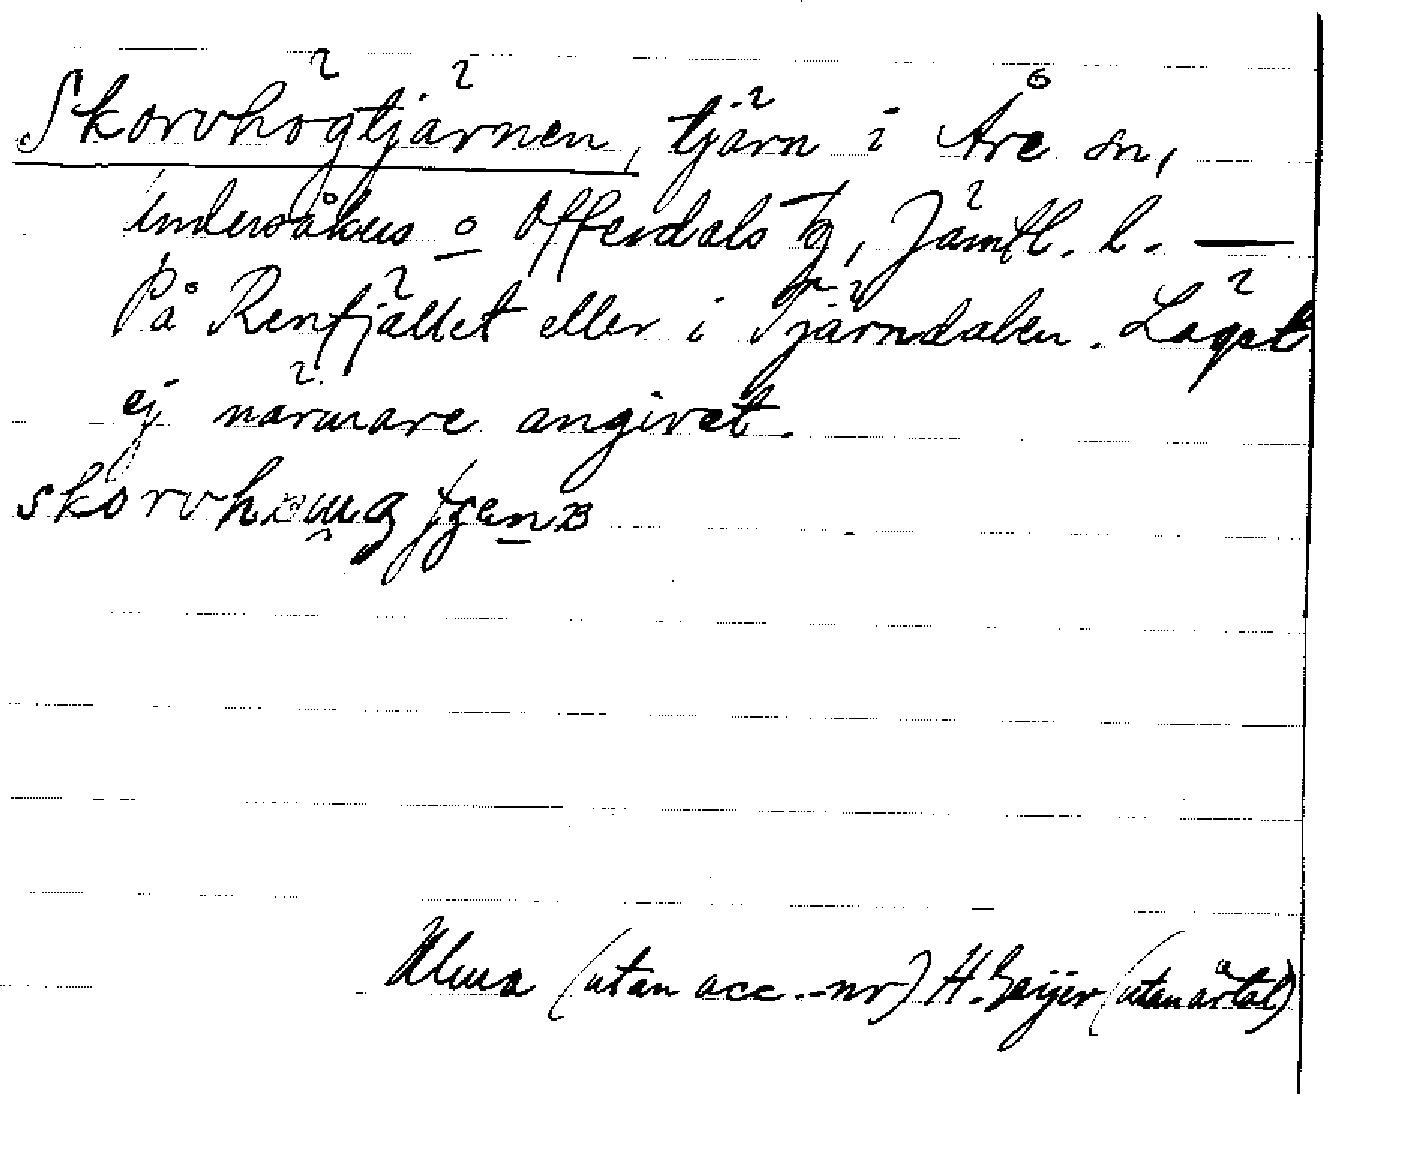 Skorvhögtjärnen, tjärn i Åre sn,
Undersåkers o Offerdals tg, Jämtl. l. —
På Renfjället eller i Tjärndalen. Läget
ej närmare angivet.
Ulma (utan acc.-nr) H. Geijer (utan årtal)